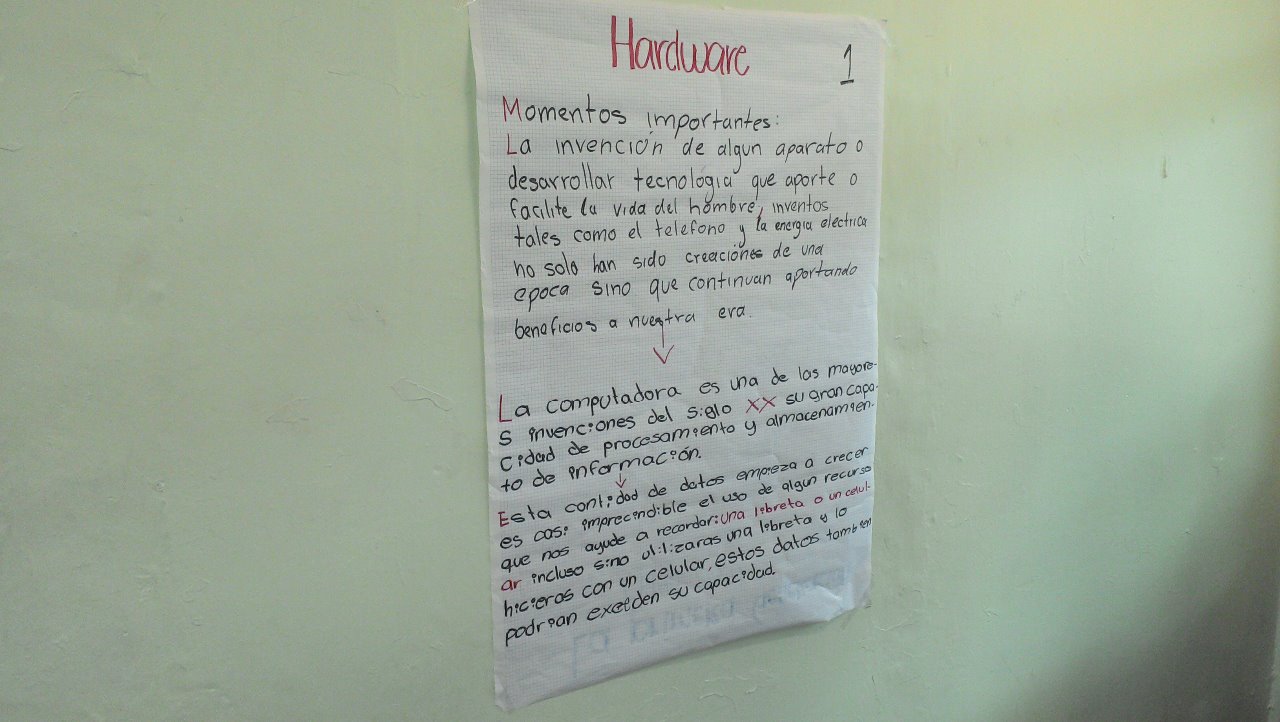 Hardware
1
Momentos importantes:
La invención de algun aparato o
desarrollar tecnologia que aporte o
facilite la vida del hombre, inventos
tales como el telefono y la energia electrica
no solo han sido creaciónes de una
epoca sino que continuan aportando
beneficios a nuestra era.
La computadora es una de las mayore-
s invenciones del siglo XX su gran capa-
cidad de procesamiento y almacenamien-
to de información.
Esta contidad de datos empieza a crecer
es casi imprecindible el uso de algun recurso
que nos ayude a recordar: una libreta o un celul-
ar incluso sino utilizaras una libreta y lo
hicieras con un celular, estos datos tambien
podrian exeden su capacidad.